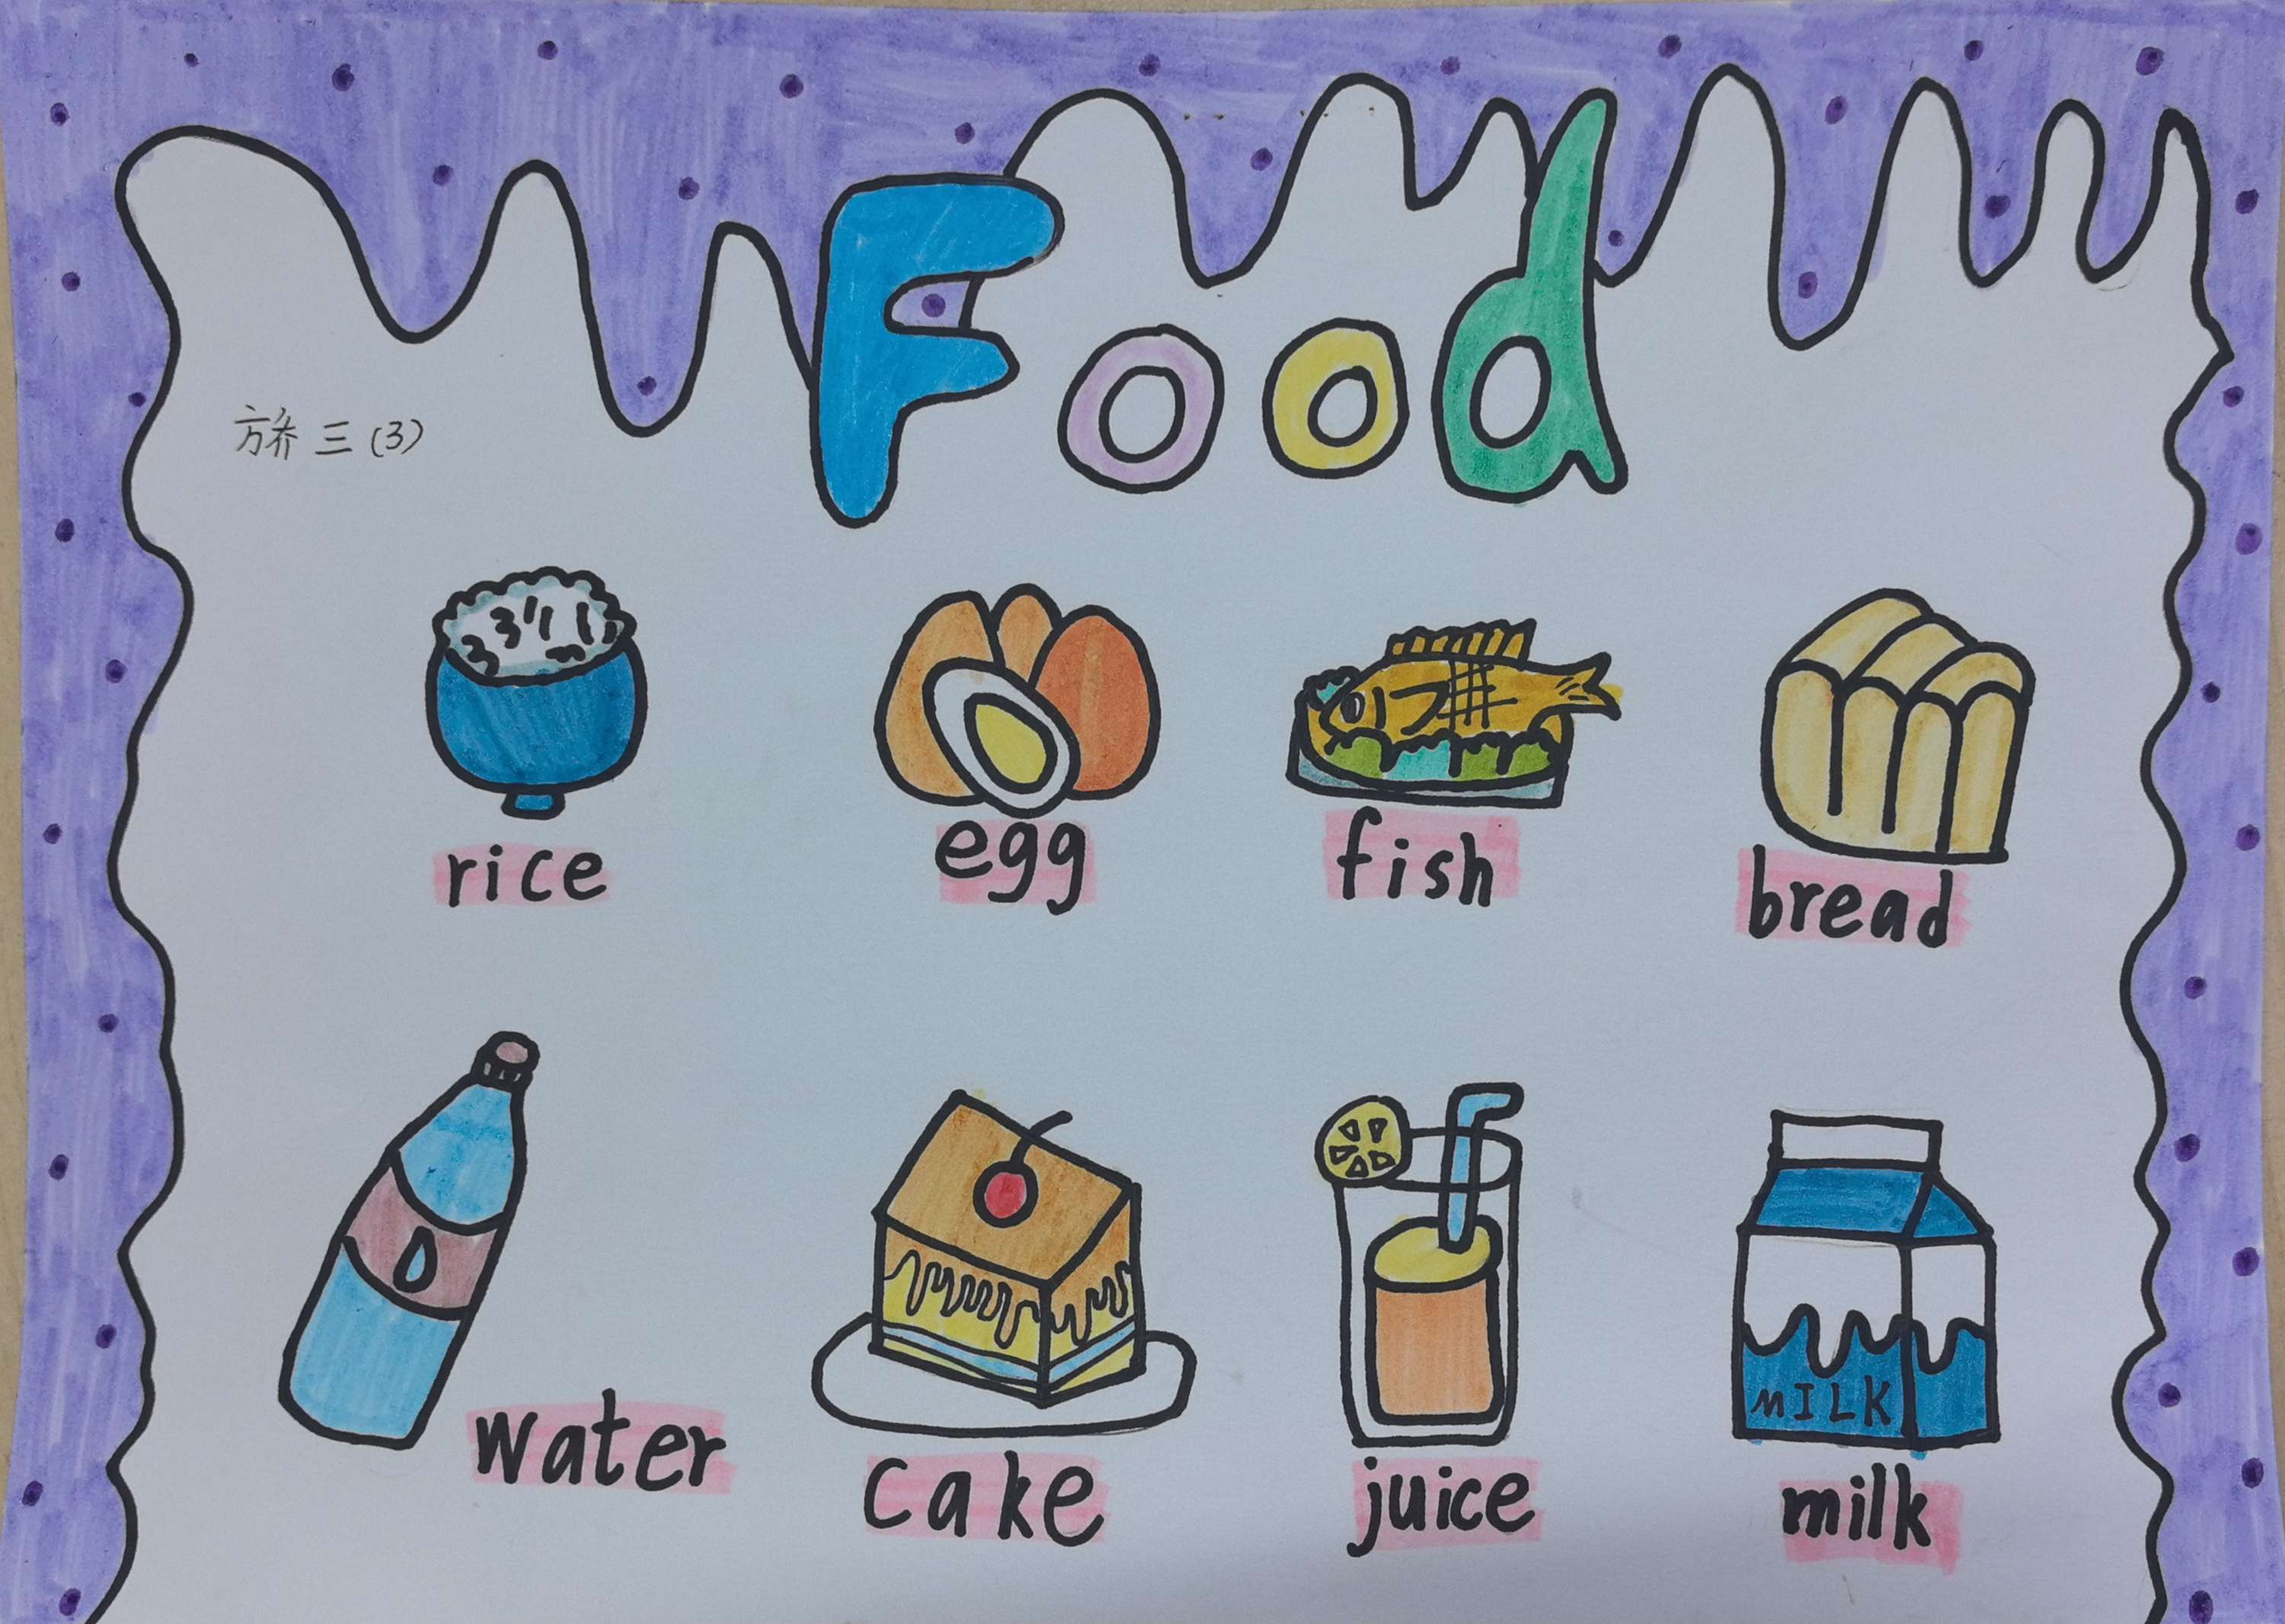 Food
方乔 三(3)
rice egg fish bread
water cake juice milk
MILK